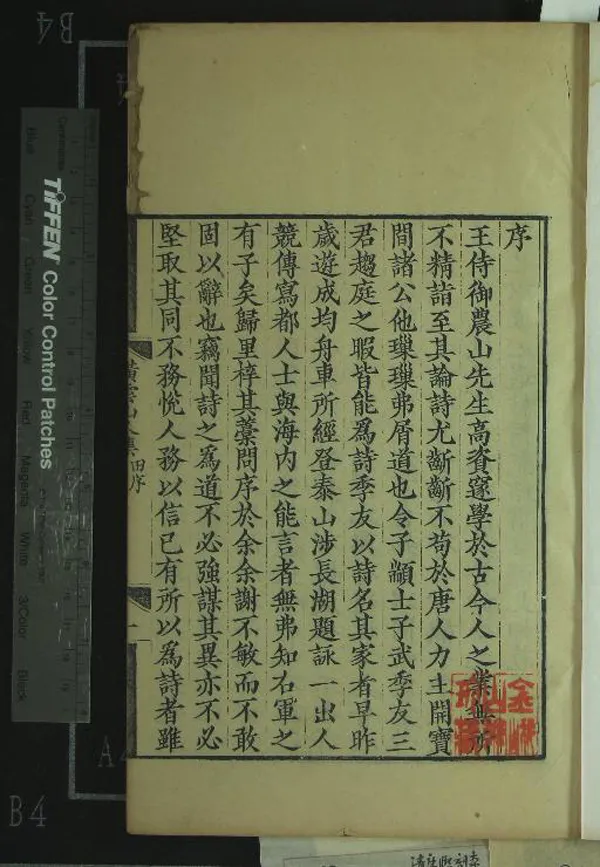 序
王侍御農山先生高資邃學於古今人之業無所
不精詣至其論詩尤齗齗不苟於唐人力主開寶
間諸公他璅璅弗屑道也令子顓士子武季友三
君趨庭之暇皆能為詩季友以詩名其家者早昨
歲遊成均舟車所經登泰山涉長湖題詠一出人
競傳寫都人士與海内之能言者無弗知右軍之
有子矣歸里梓其藁問序於余余謝不敏而不敢
固以辭也竊聞詩之為道不必強謀其異亦不必
堅取其同不務悅人務以信己有所以為詩者雖
田序
一
TIFFEN Color Control Patches
Blue
Cyan
Green
Yellow
Red
Magenta
White
3/Color
Black
B4
B4
A4